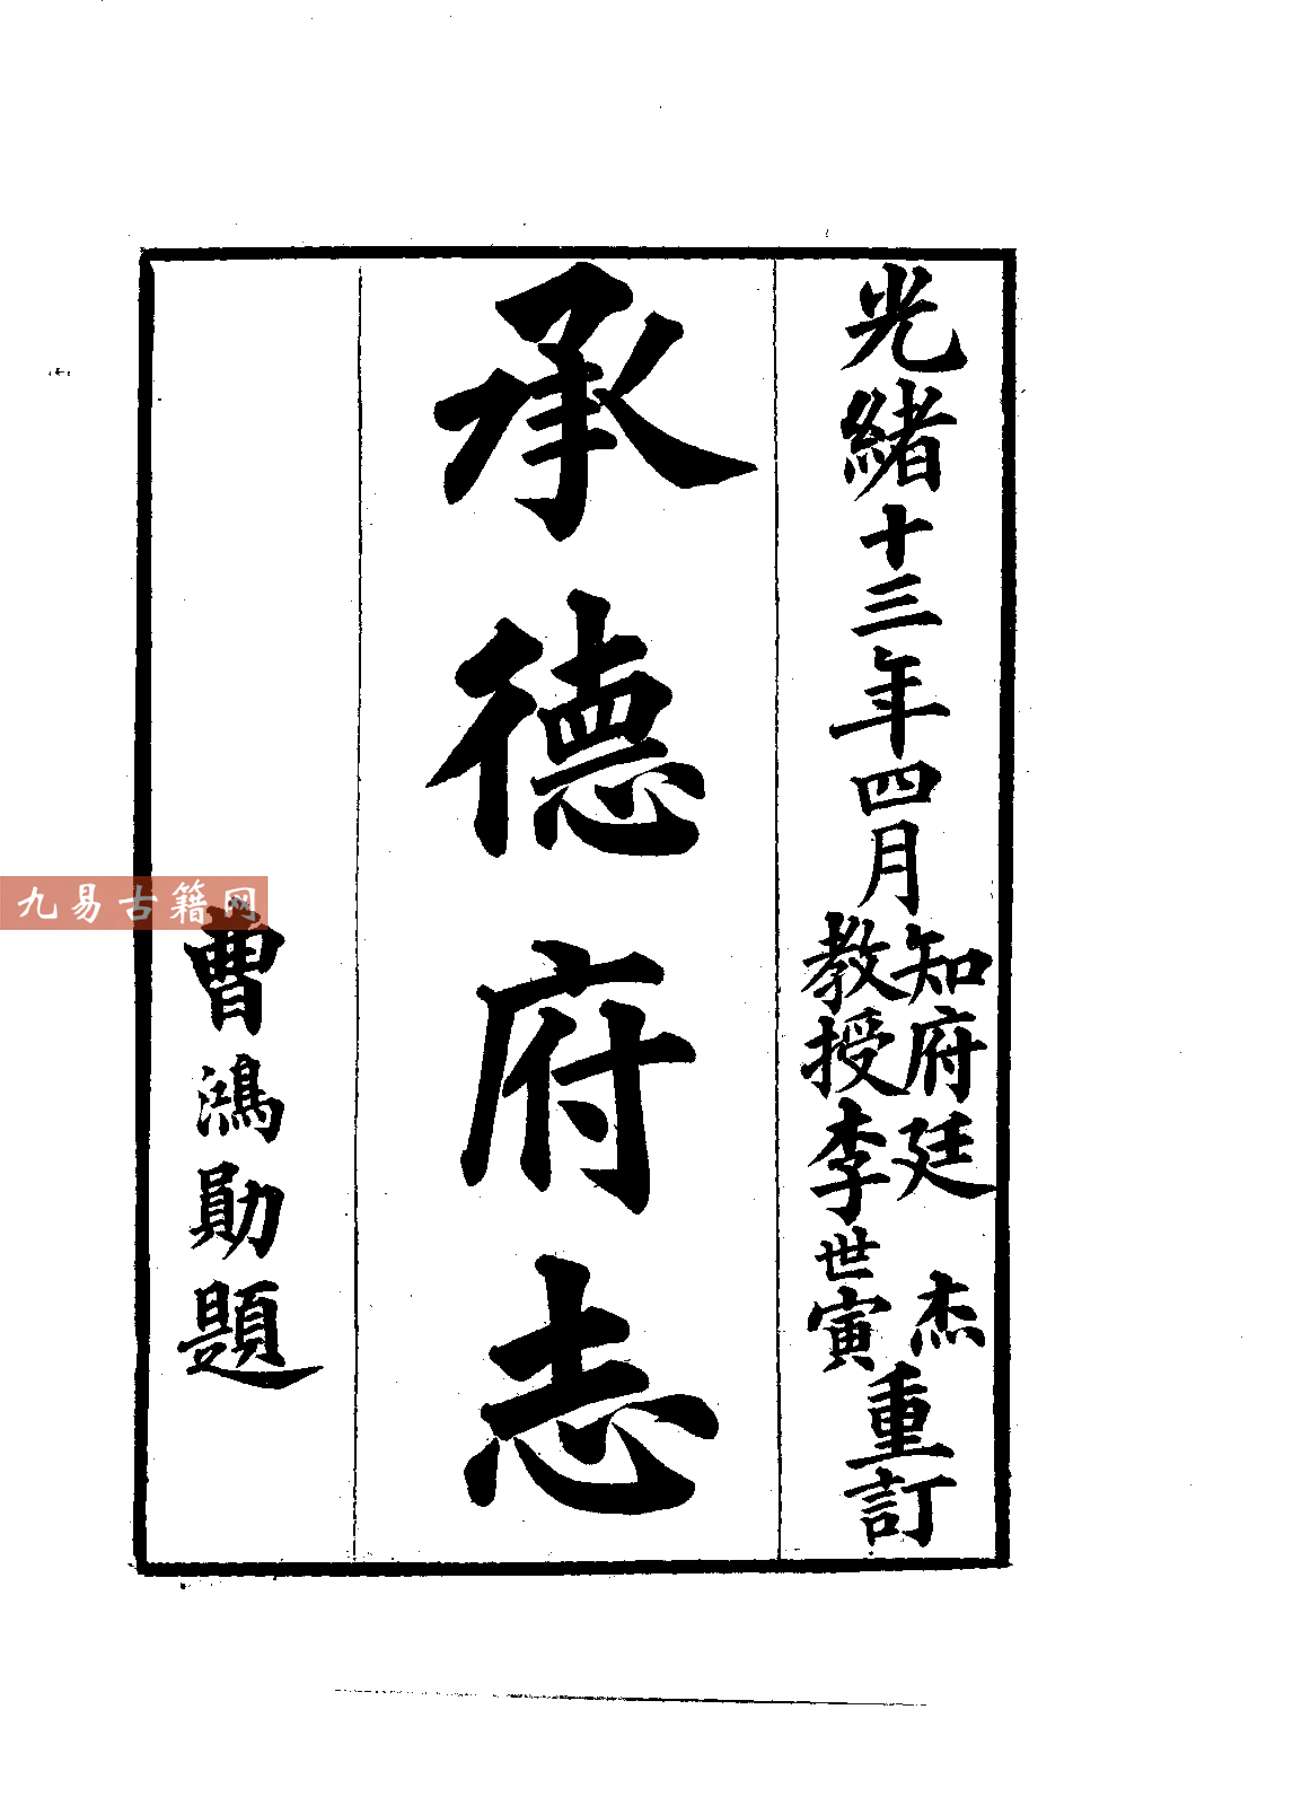 光緒十三年四月
知府廷杰
教授李世寅
重訂
承德府志
曹鴻勛題
九易古籍网